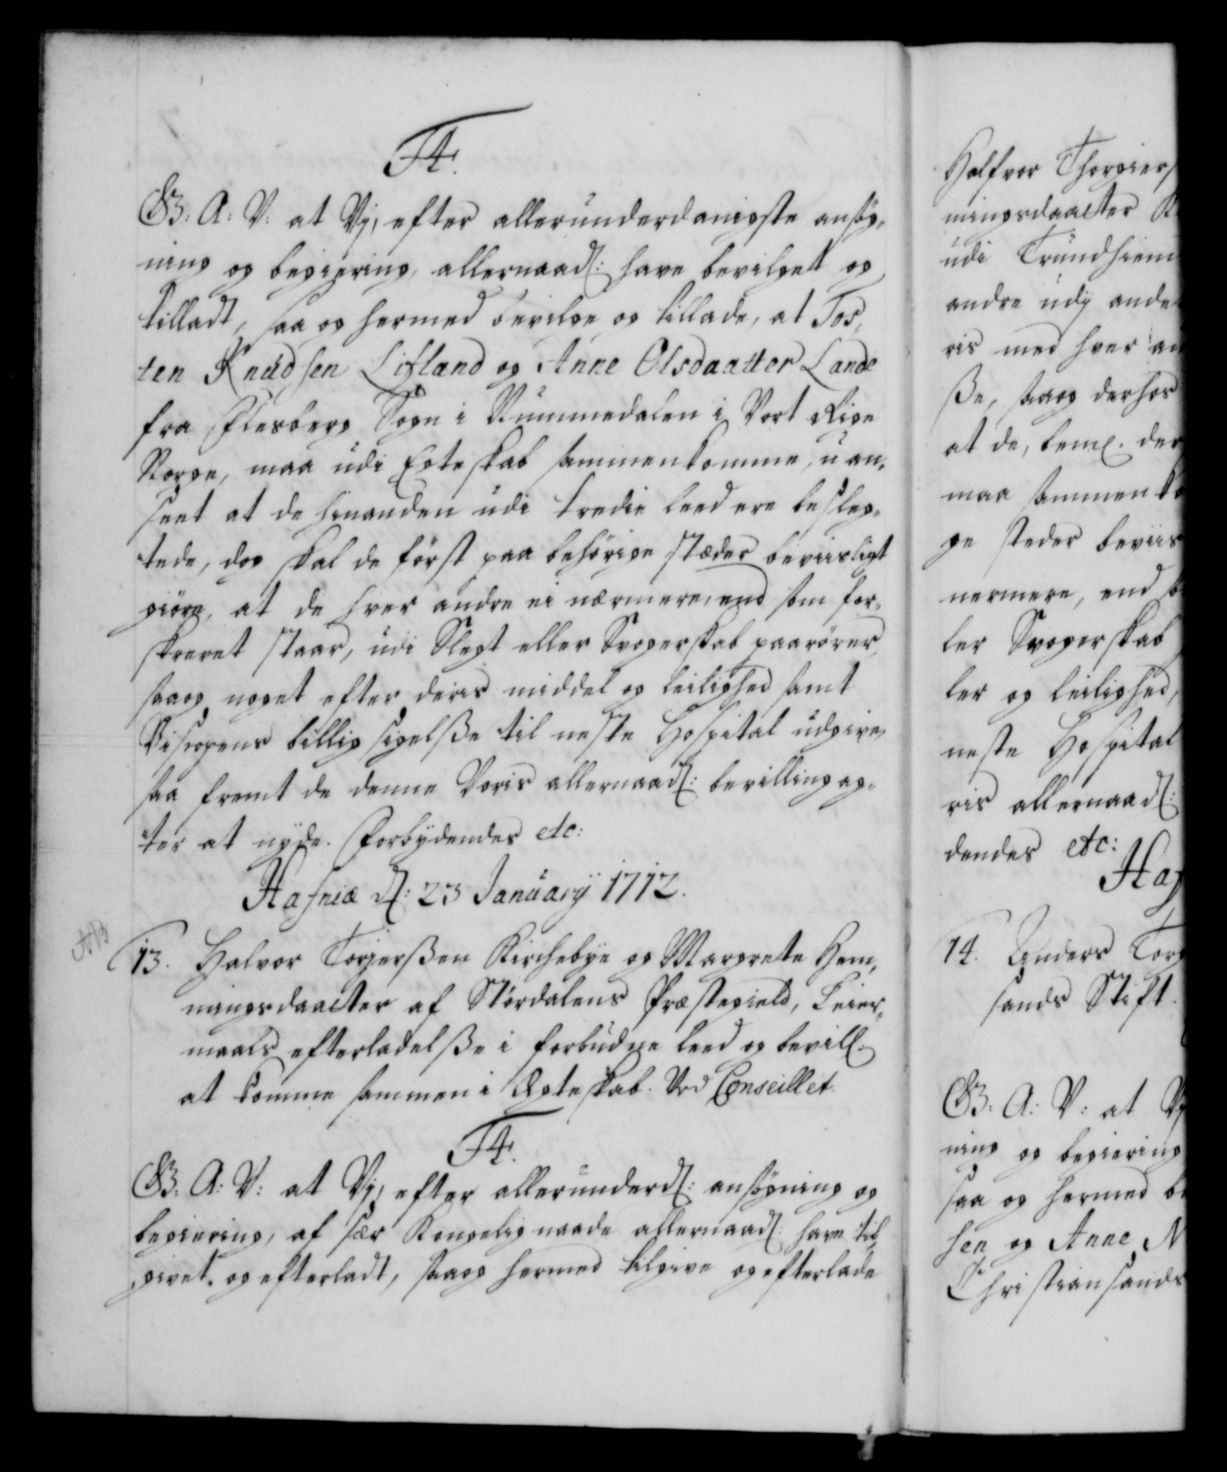 F4.
G: A: V: at Vj, efter allerunderdanigste ansøg-
ning og begiering, allernaad: have bevilget og
tilladt, saa og hermed bevilge og tillade, at Tos-
ten Knudsen Lifland og Anne Olsdaatter Lande
fra Flesberg Sogn i Nummedalen i Vort Rige
Norge, maa udi Egteskab sammenkomme, uan-
seet at de hinanden udi tredie leed ere besleg-
tede, dog skal de först paa behörige stæder beviisligt
giöre, at de hver andre ei nærmere, end som for-
skrevet staar, udi Slegt eller Svogerskab paarörer,
saa og noget efter deris middel og leilighed samt
Biscopens billig sigelsse til neste Hospital udgive,
saa fremt de denne Voris allernaad: bevilling ag-
ter at nyde. Forbydendes etc:
Hafniæ d: 23 January 1712.
13. Halvor Torgerssen Kirchebye og Margrete Hem-
mingsdaatter af Stördalens Præstegield, Leier-
maals efterladelsse i forbudne leed og bevill.
at komme sammen i Ægteskab. Ved Conseillet.
F4.
G: A: V: at Vj, efter allerunderd: ansögning og
begiering, af sær Kongelig naade allernaad: have til-
givet og efterladt, saa og hermed tilgive og efterlade
Halfvor Thorgiers
mingsdaatter K
udi Trundhiem
andre udj ande
ris med hver an
sse, saa og derhos
at de, beml. der
maa sammenko
ge steder beviis
nermere, end so
ler Svogerskab
ler og leilighed,
neste Hospital
ris allernaad:
dendes etc:
Haf
14. Anders Torg
sands Stift.
G: A: V: at Vj
ning og begiering
saa og hermed be
sen og Anne N
Christiansands